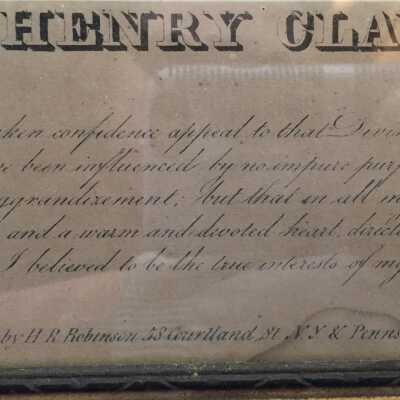 HENRY CLA
ken confidence appeal to that Divin
e been influenced by no impure purp
ggrandizement; but that in all m
and a warm and devoted heart, direct
I believed to be the true interests of my
by H. R. Robinson 58 Courtland St N.Y & Penns